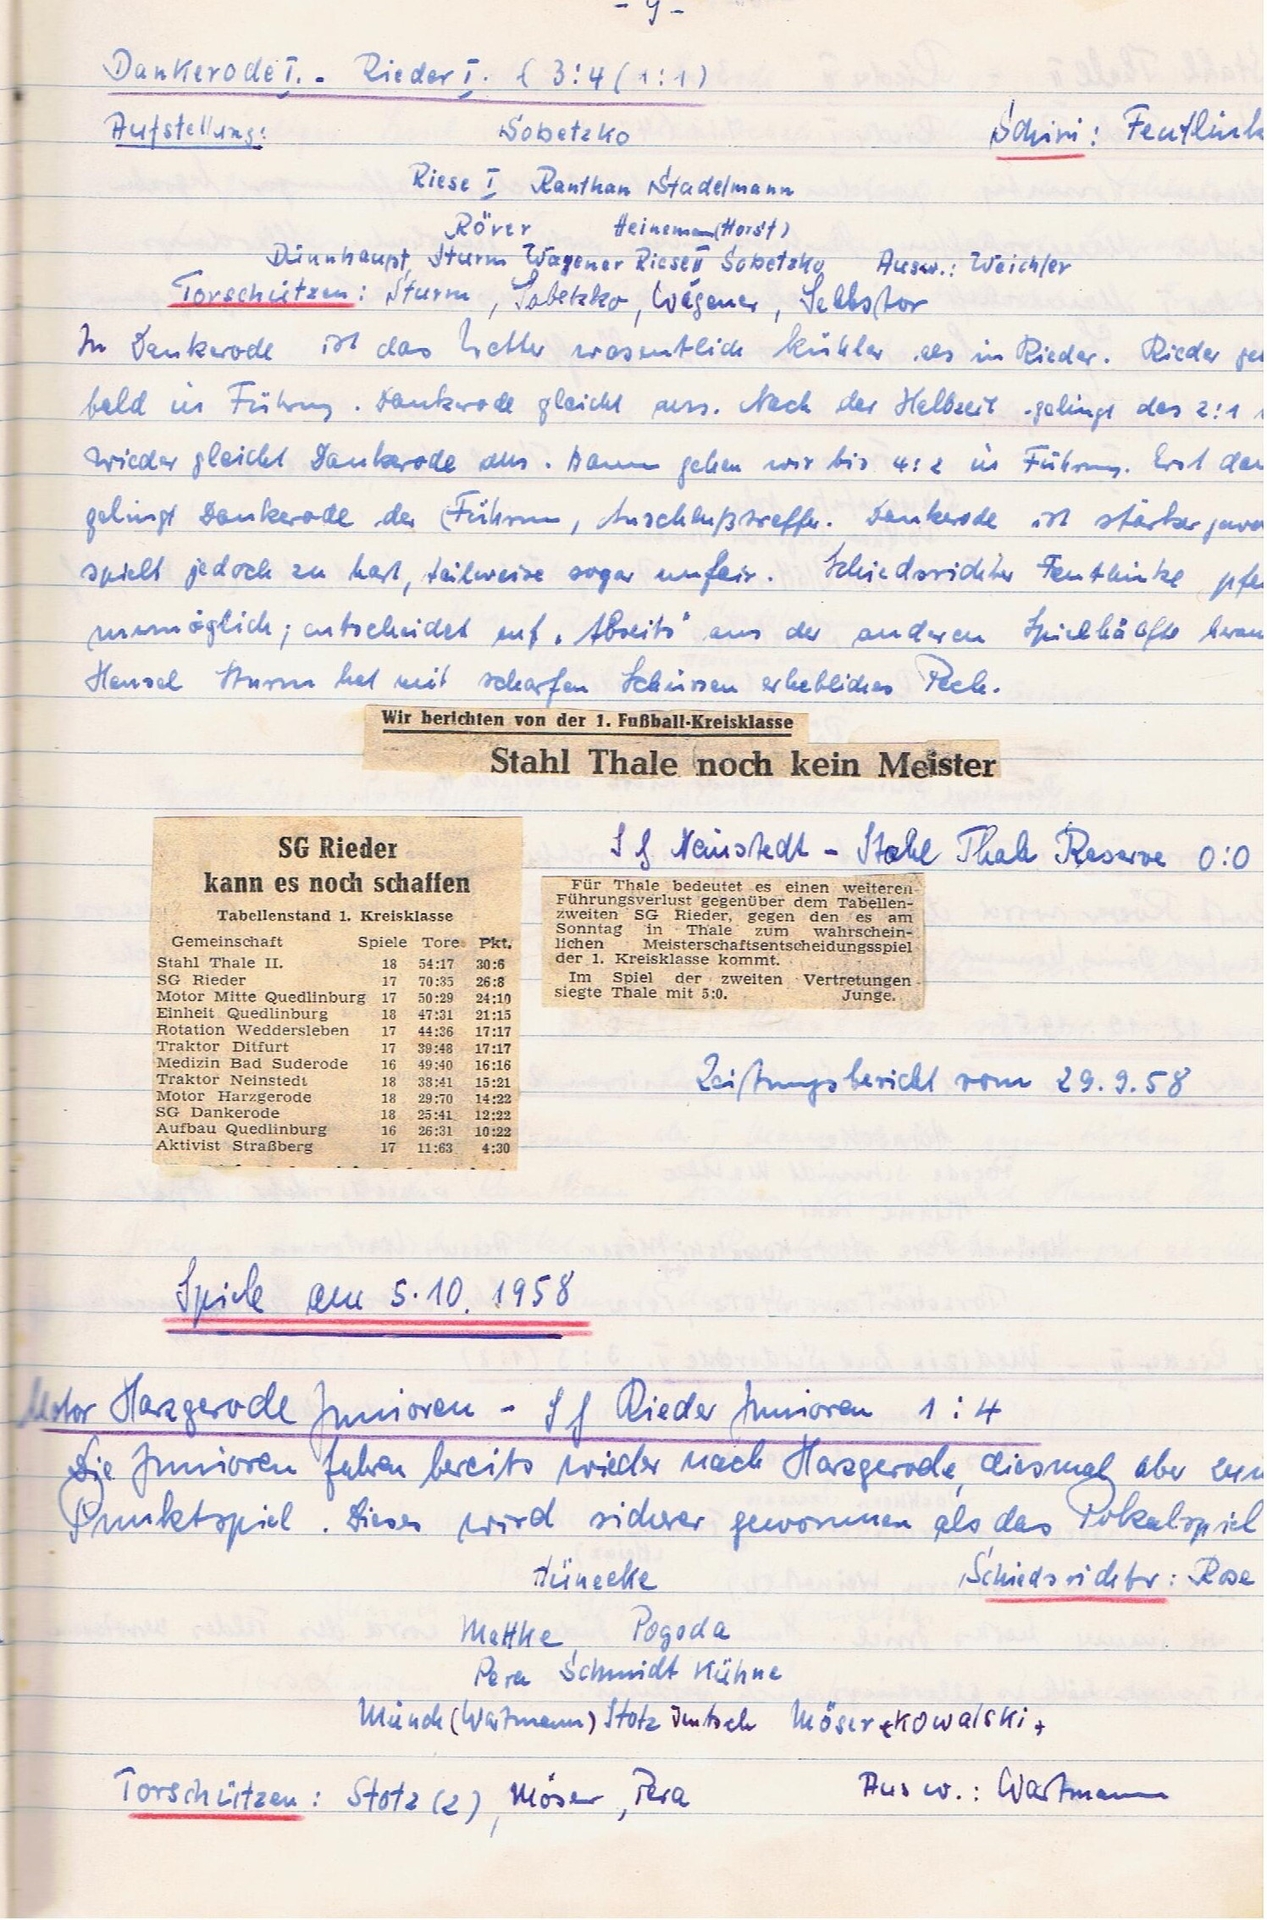 - 9 -
Dankerode I. - Rieder I. ( 3:4 (1:1)
Aufstellung: Sobetzko Schiri:
Riese I Ranthan Stadelmann
Röver Heinemann (Horst)
Dünnhaupt, Sturm Wagener Riese II Sobetzko Ausw.: Weichler
Torschützen: Sturm, Sobetzko, Wagener, Selbsttor
In Dankerode ist das Wetter wesentlich kühler als in Rieder. Rieder
bald in Führung. Dankerode gleicht aus. Nach der Halbzeit gelingt das 2:1
wieder gleicht Dankerode aus. Dann gehen wir bis 4:2 in Führung. Erst
gelingt Dankerode der (Führun, Anschlußtreffer. Dankerode ist stärker
spielt jedoch zu hart, teilweise sogar unfair. Schiedsrichter
unmöglich; entscheidet auf "Abseits" aus der anderen Spielhälfte
Hansel Sturm hat mit scharfen Schüssen erhebliches Pech.
Wir berichten von der 1. Fußball-Kreisklasse
Stahl Thale noch kein Meister
SG Rieder
kann es noch schaffen
Tabellenstand 1. Kreisklasse
Gemeinschaft Spiele Tore Pkt.
Stahl Thale II. 18 54:17 30:6
SG Rieder 17 70:35 26:8
Motor Mitte Quedlinburg 17 50:29 24:10
Einheit Quedlinburg 18 47:31 21:15
Rotation Weddersleben 17 44:36 17:17
Traktor Ditfurt 17 39:48 17:17
Medizin Bad Suderode 16 49:40 16:16
Traktor Neinstedt 18 38:41 15:21
Motor Harzgerode 18 29:70 14:22
SG Dankerode 18 25:41 12:22
Aufbau Quedlinburg 16 26:31 10:22
Aktivist Straßberg 17 11:63 4:30
SG Neinstedt - Stahl Thale Reserve 0:0
Für Thale bedeutet es einen weiteren
Führungsverlust gegenüber dem Tabellen-
zweiten SG Rieder, gegen den es am
Sonntag in Thale zum wahrschein-
lichen Meisterschaftsentscheidungsspiel
der 1. Kreisklasse kommt.
Im Spiel der zweiten Vertretungen
siegte Thale mit 5:0. Junge.
Zeitungsbericht vom 29.9.58
Spiele am 5.10.1958
Motor Harzgerode Junioren - SG Rieder Junioren 1:4
Die Junioren fahren bereits wieder nach Harzgerode, diesmal aber zum
Punktspiel. Dieses wird sicherer gewonnen als das Pokalspiel
Hünecke Schiedsrichter: Rose
Mattke Pogoda
Pera Schmidt Kühne
Münch (Wartmann) Stotz Jentsch Möser +Kowalski+
Torschützen: Stotz (2), Möser, Pera Ausw.: Wartmann